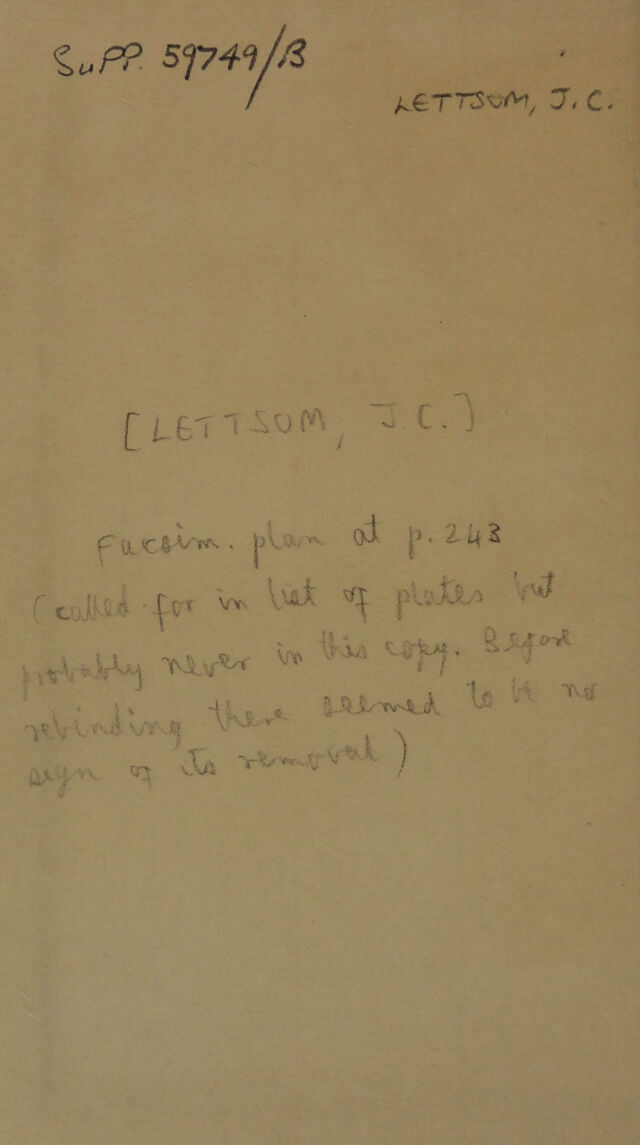 SUPP. 59749/B
LETTSOM, J.C.
[LETTSOM, J.C.]
Facsim. plan at p. 243
(called for in list of plates but
probably never in this copy. Before
rebinding there seemed to be no
sign of its removal)